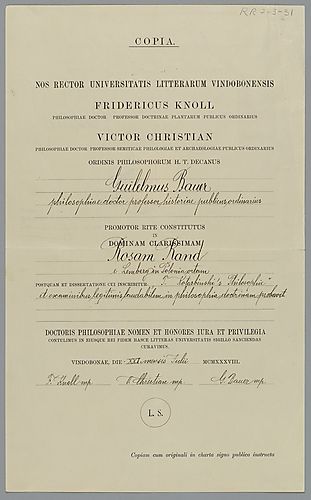 RR 2-3-31
COPIA.
NOS RECTOR UNIVERSITATIS LITTERARUM VINDOBONENSIS
FRIDERICUS KNOLL
PHILOSOPHIAE DOCTOR PROFESSOR DOCTRINAE PLANTARUM PUBLICUS ORDINARIUS
VICTOR CHRISTIAN
PHILOSOPHIAE DOCTOR PROFESSOR SEMITICAE PHILOLOGIAE ET ARCHAEOLOGIAE PUBLICUS ORDINARIUS
ORDINIS PHILOSOPHORUM H. T. DECANUS
Guilelmus Bauer
philosophiae doctor professor historiae publicus ordinarius
PROMOTOR RITE CONSTITUTUS
IN
DOMINAM CLARISSIMAM
Rosam Rand
e Lemberg in Polonia ortam
POSTQUAM ET DISSERTATIONE CUI INSCRIBITUR "T. Kotarbiński's Philosophie"
et examinibus legitimis laudabilem in philosophia doctrinam probavit
DOCTORIS PHILOSOPHIAE NOMEN ET HONORES IURA ET PRIVILEGIA
CONTULIMUS IN EIUSQUE REI FIDEM HASCE LITTERAS UNIVERSITATIS SIGILLO SANCIENDAS
CURAVIMUS.
VINDOBONAE, DIE mensis Julii MCMXXXVIII.
F. Knoll mp. V. Christian mp. G. Bauer mp.
L. S.
Copiam cum originali in charta signo publico instructa